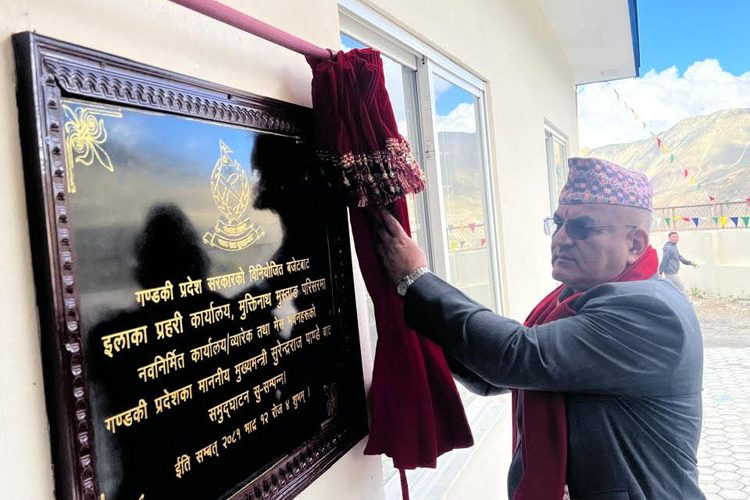 गण्डकी प्रदेश सरकारको विनियोजित बजेटबाट
इलाका प्रहरी कार्यालय, मुक्तिनाथ मुस्ताङ परिसरमा
नवनिर्मित कार्यालय/व्यारेक तथा मेस भवनहरूको
गण्डकी प्रदेशका माननीय मुख्यमन्त्री सुरेन्द्रराज पाण्डे बाट
समुद्घाटन सु-सम्पन्न।
ईति सम्बत् २०८१ भाद्र १२ रोज ४ शुभम् ।